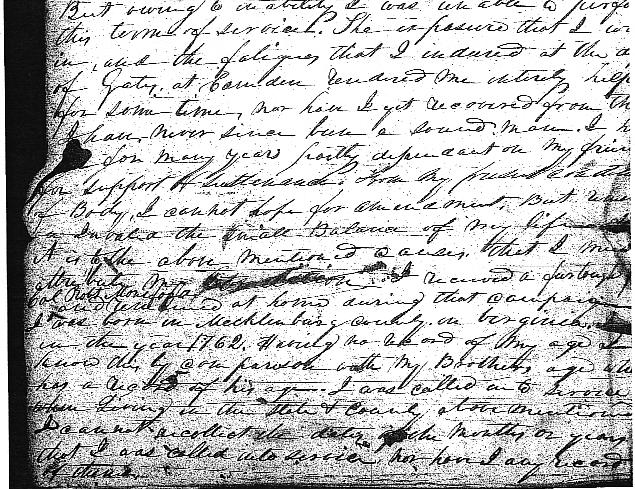 But owing to inability I was unable to perfo
this term of service. The exposure that I w
in, and the fatigues that I indured at the d
of Gates, at Camden rendered me intirely help
for some time, nor have I yet recovered from th
I have never since been a sound man. I h
for many years partly dependant on my frien
for support & sustenance. From my present condit
of Body, I cannot hope for amendment, But rem
an Invalid the small Balance of my life
It is to the above mentioned causes, that I mu
attribute my condition. I received a furlough
and remained at home during that campaign
I was born in Mecklenburg County in Virginia,
in the year 1762. Having no record of my age I
know this by comparison with my Brothers age who
has a record of his age. I was called into service
when living in the State & County above mentioned
I cannot recollect the dates of the months or years
that I was called into service, nor have I any record
of these.